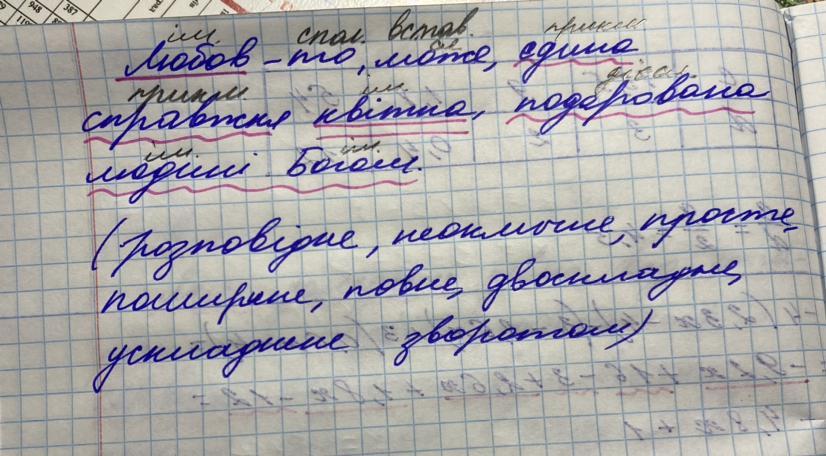 948 387
ім. спол. встав. прикм.
Любов – то, може, єдина
прикм. ім. дієсл.
справжня квітка, подарована
ім. ім.
людині Богом.
(розповідне, неокличне, просте,
поширене, повне, двоскладне,
ускладнене зворотом)